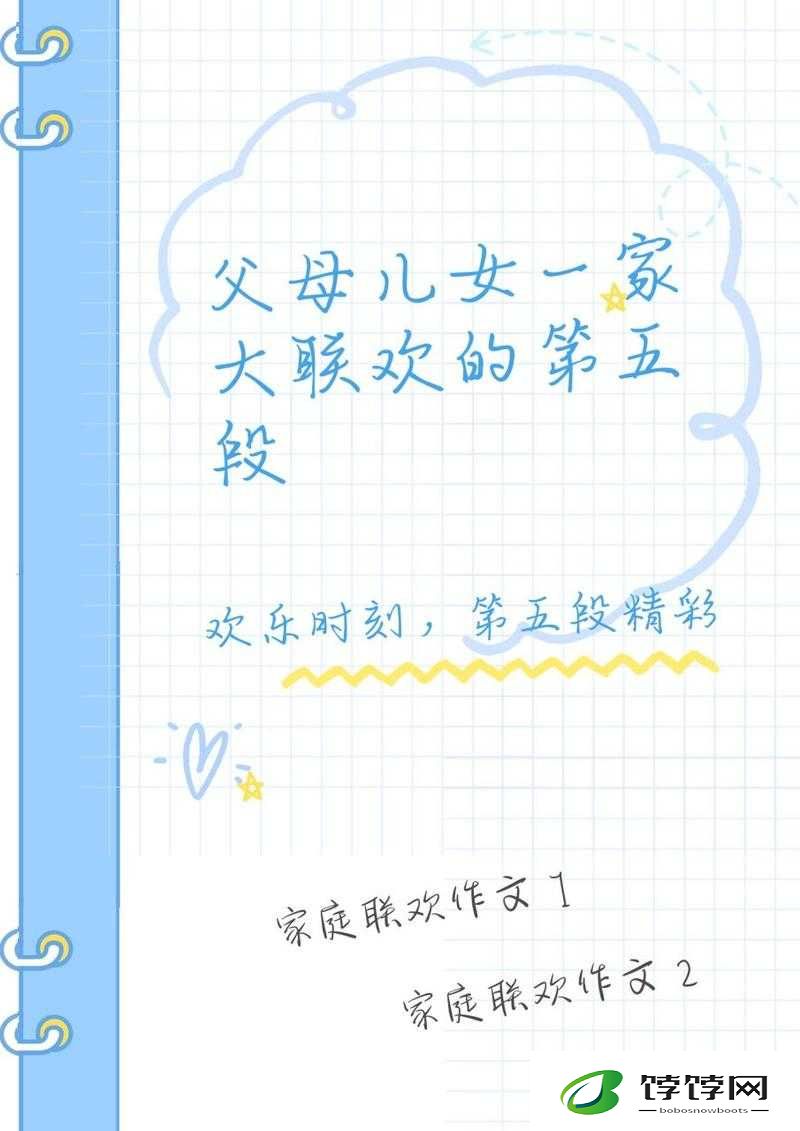 父母儿女一家
大联欢的第五
段
欢乐时刻，第五段精彩
家庭联欢作文1
家庭联欢作文2
饽饽网
bobosnowboots